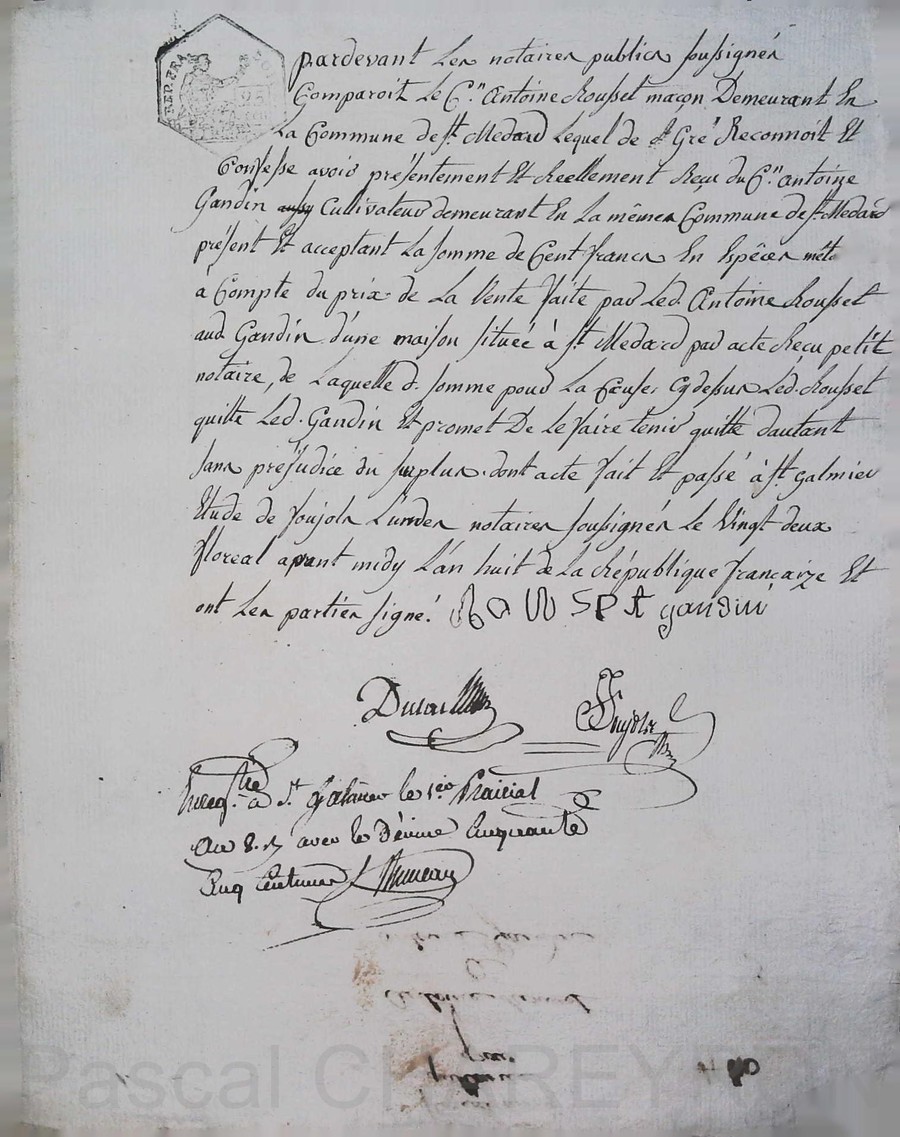 REP. FRA
25
pardevant Les notaires publics soussignés
Comparoit Le C.en Antoine Rousset maçon Demeurant En
La Commune de st. Medard Lequel de st Gré Reconnoit Et
Confesse avoir présentement Et Reellement Recu du C.en antoine
Gandin Cultivateur demeurant En La mêmes Commune de st. Medard
présent Et acceptant La somme de Cent francs En Espèces mét.
à Compte du prix de La Vente faite par Led. Antoine Rousset
aud Gandin d'une maison Située à st. Medard par acte Recu petit
notaire, de Laquelle d. somme pour La Cause Cydessus Led. Rousset
quitte Led. Gandin Et promet De Le faire tenir quitte dautant
sans préjudice du surplus. dont acte fait Et passé à st. galmier
Etude de foujols L'un des notaires soussignés Le Vingt deux
floreal avant midy L'an huit de La République francaize Et
ont Les parties signé. ROUSPt gandin
foujols
Enreg.tré à St. Galmier le 1er Prairial
an 8. avec le Décime Cinquante
Cinq Centimes
Pascal CHAREYRON